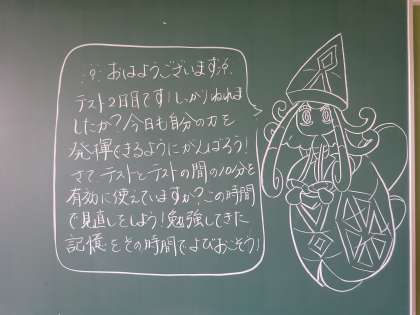 おはようございます。
テスト2日目です!しっかりねれま
したか?今日も自分の力を
発揮できるようにがんばろう!
さて、テストとテストの間の10分を
有効に使えていますか?この時間
で見直しをしよう!勉強してきた
記憶をその時間でよびおこそう!